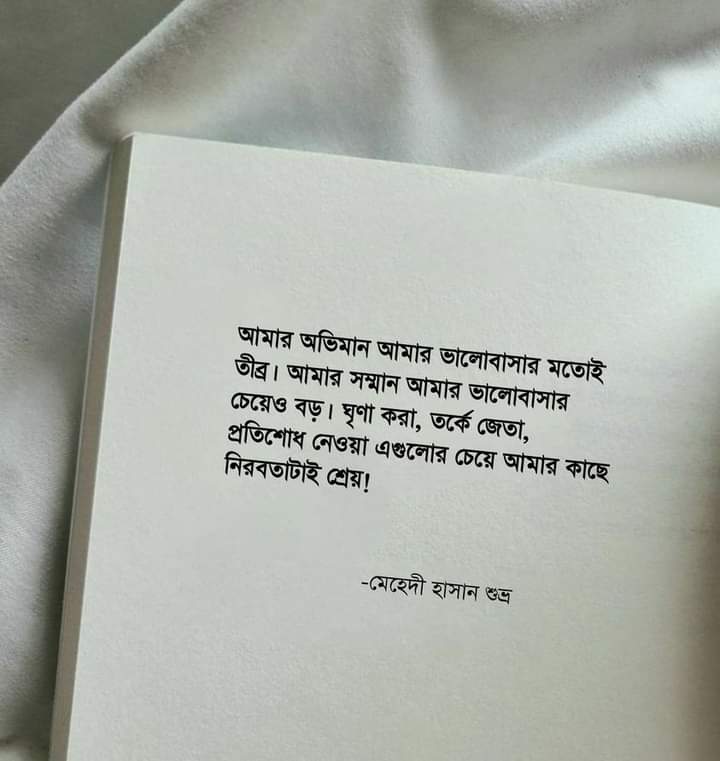 আমার অভিমান আমার ভালোবাসার মতোই
তীব্র। আমার সম্মান আমার ভালোবাসার
চেয়েও বড়। ঘৃণা করা, তর্কে জেতা,
প্রতিশোধ নেওয়া এগুলোর চেয়ে আমার কাছে
নিরবতাটাই শ্রেয়!
-মেহেদী হাসান শুভ্র